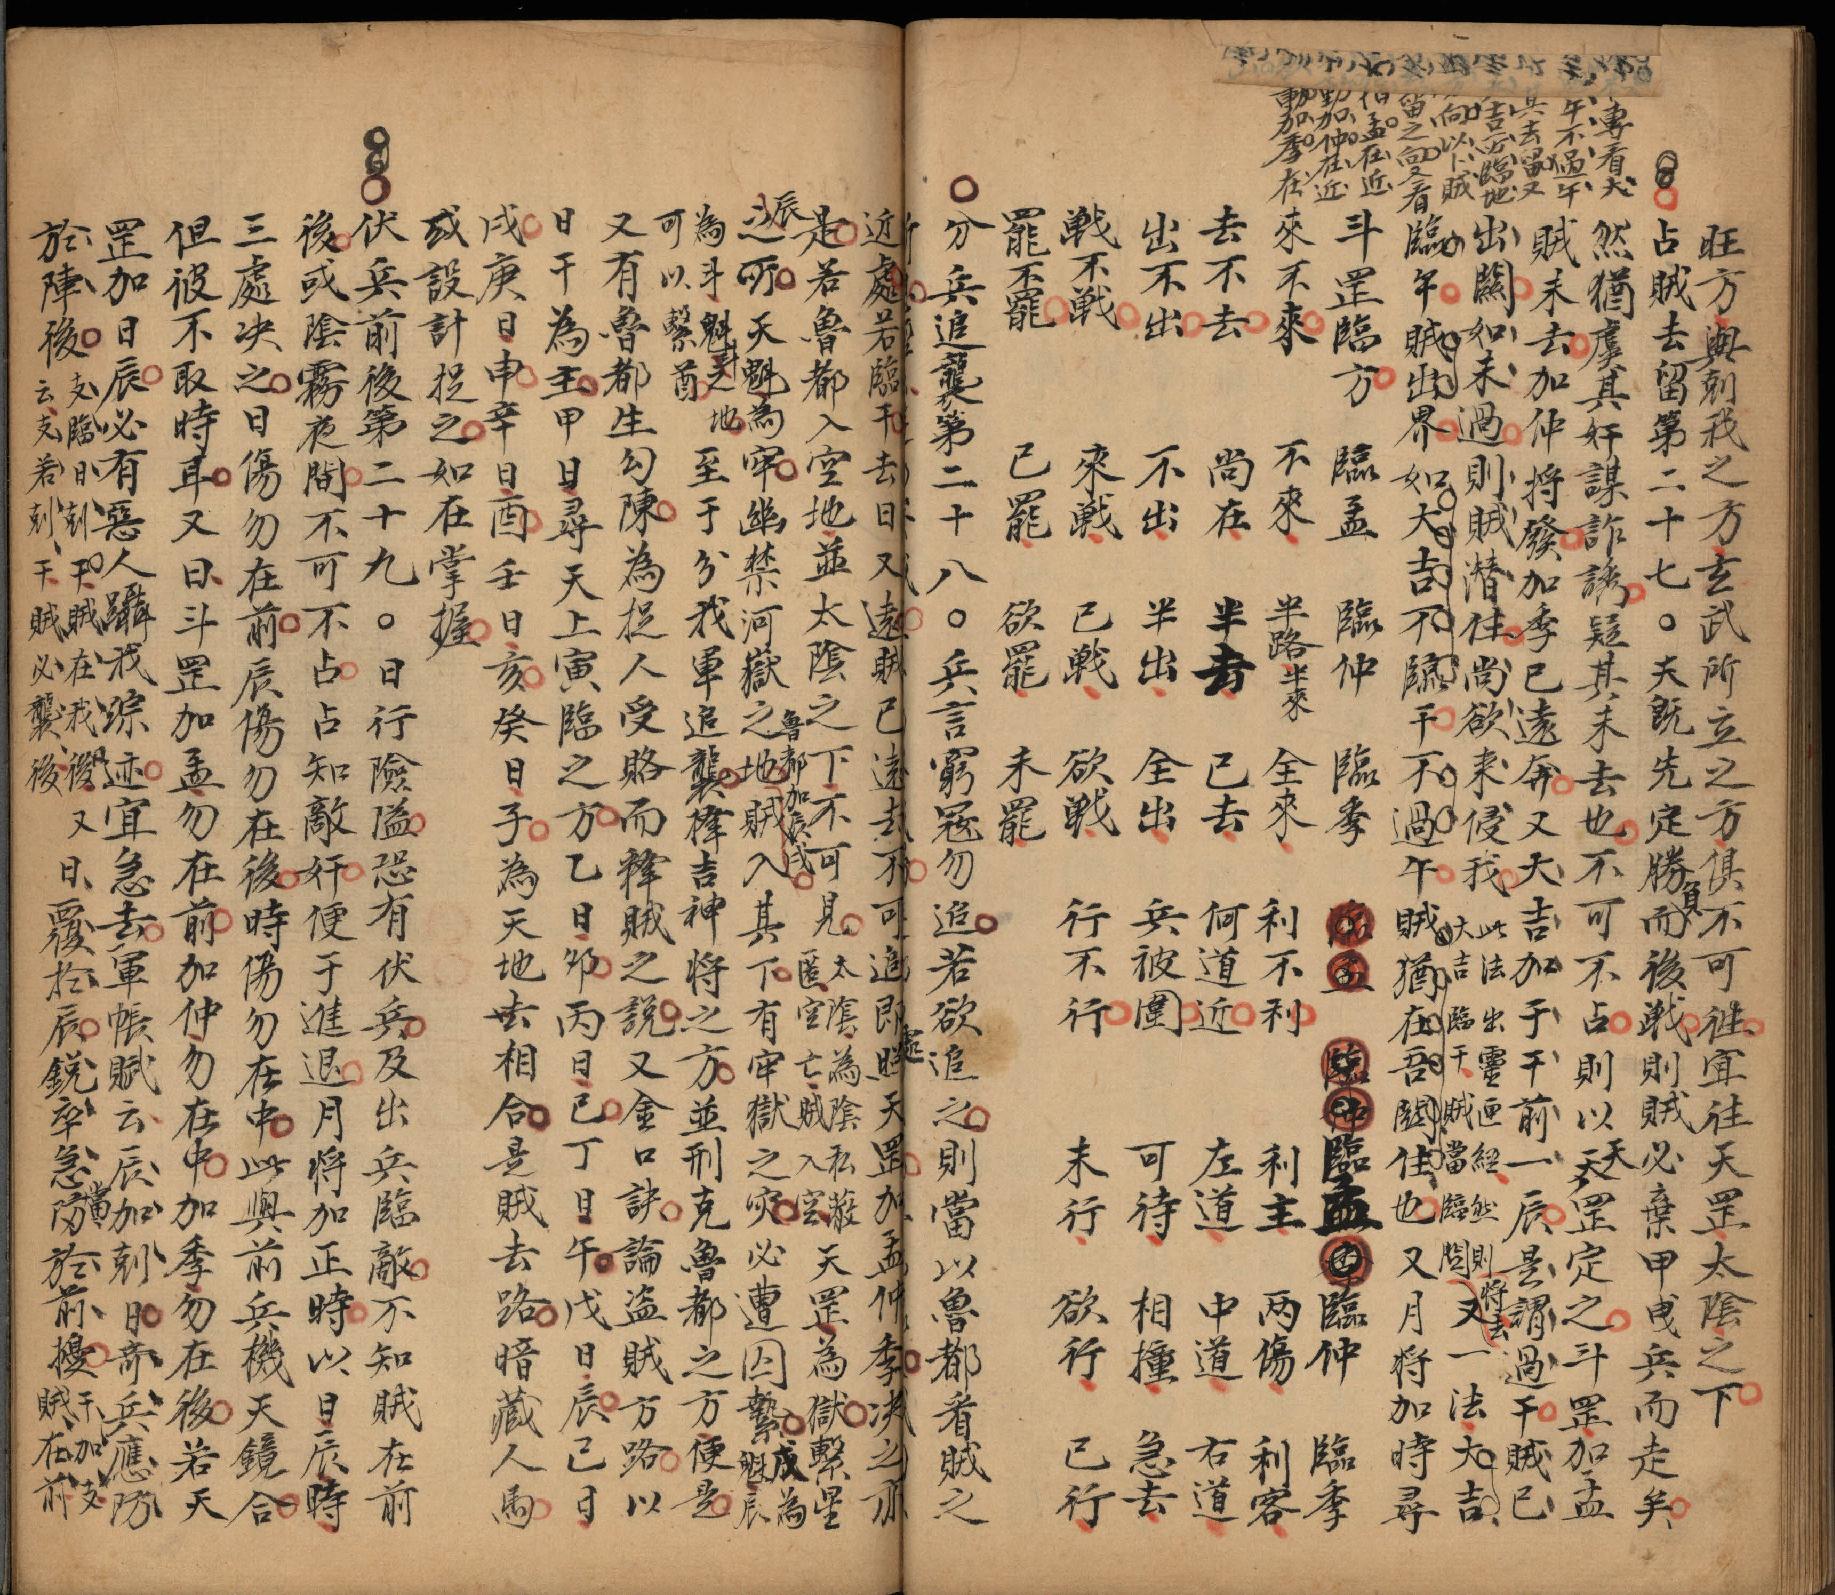 旺方與剋我之方玄武所立之方俱不可徃宜往天罡太陰之下
占賊去留第二十七○夫既先定勝負而後戰則賊必棄甲曳兵而走矣
然猶虞其奸謀詐誘疑其未去也不可不占則以天罡定之斗罡加孟
賊未去加仲將發加季已遠奔又大吉加于干前一辰是謂過干賊已
出關如未過則賊潛住尚欲来侵我
此法出靈匣經然則將去
大吉臨干賊當臨關
又一法大吉
臨午賊出界如大吉不臨干不過午賊猶在吾關住也又月將加時尋
斗罡臨方 臨孟 臨仲 臨季 臨孟 臨仲 臨季
來不來 不來 半路半來 全來 利不利 利主 兩傷 利客
去不去 尚在 半去 已去 何道近 左道 中道 右道
出不出 不出 半出 全出 兵被圍 可待 相撞 急去
戰不戰 來戰 已戰 欲戰 行不行 未行 欲行 已行
罷不罷 已罷 欲罷 未罷
分兵追襲第二十八○兵言窮寇勿追若欲追之則當以魯都看賊之
近處若臨干去日又遠賊已遠去不可追即處照天罡加孟仲季决之亦
是若魯都入空地並太陰之下不可見
太陰為陰私蔽
匿空亡賊入空
天罡為獄繫星
辰之所天魁為牢幽禁河獄之地賊入其下有牢獄之灾必遭囚縶
魯都加辰戌
戌為
魁辰
為斗魁斗之地
可以繫酋
至于分我軍追襲擇吉神將之方並刑克魯都之方便是
又有魯都生勾陳為捉人受賂而釋賊之說又金口訣論盜賊方路以
日干為主甲日尋天上寅臨之方乙日夘丙日巳丁日午戊日辰己日
戌庚日申辛日酉壬日亥癸日子為天地去相合是賊去路暗藏人馬
或設計捉之如在掌握
伏兵前後第二十九○日行險隘恐有伏兵及出兵臨敵不知賊在前
後或陰霧夜間不可不占占知敵奸便于進退月將加正時以日辰時
三處决之日傷勿在前辰傷勿在後時傷勿在中此與前兵機天鏡合
但彼不取時耳又曰斗罡加孟勿在前加仲勿在中加季勿在後若天
罡加日辰必有惡人躡我踪迹宜急去軍帳賦云辰加剋日奇兵應防
於陣後
支臨日剋干賊在我後
云支若剋干賊必襲後
又曰覆於辰銳卒急當防於前擾
干加支
賊在前